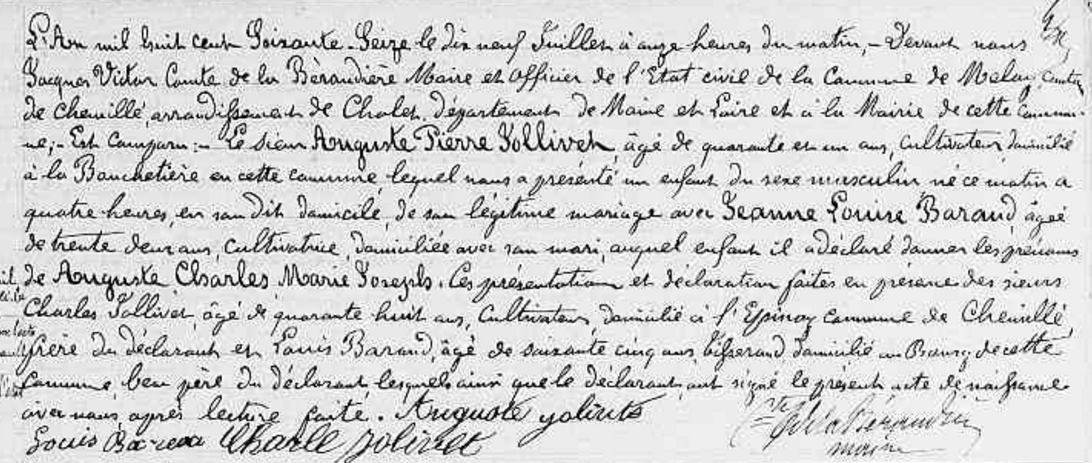 L'An mil huit cent Soixante-Seize le dix neuf Juillet à onze heures du matin, – Devant nous
Jacques Victor Comte de la Bèraudière Maire et Officier de l'Etat civil de la Commune de Melay, canton
de Chemillé, arrondissement de Cholet, département de Maine et Loire et à la Mairie de cette Commu-
ne, – Est Comparu : – Le sieur Auguste Pierre Jollivet, âgé de quarante et un ans, Cultivateur, domicilié
à la Bouchetière en cette commune, lequel nous a présenté un enfant du sexe masculin né ce matin à
quatre heures, en son dit domicile, de son légitime mariage avec Jeanne Louise Baraud, âgée
de trente deux ans, Cultivatrice, domiciliée avec son mari, auquel enfant il a déclaré donner les prénoms
de Auguste, Charles, Marie Joseph. Ces présentation et déclaration faites en présence des sieurs
Charles Jollivet, âgé de quarante huit ans, Cultivateur, domicilié à l'Epinay commune de Chemillé,
frère du déclarant et Louis Baraud, âgé de soixante cinq ans, tisserand domicilié au Bourg de cette
Commune, beau père du déclarant lesquels ainsi que le déclarant ont signé le présent acte de naissance
avec nous après lecture faite. Auguste Jolivte
Louis Charle Jolivet Cte de la Béraudière
maire